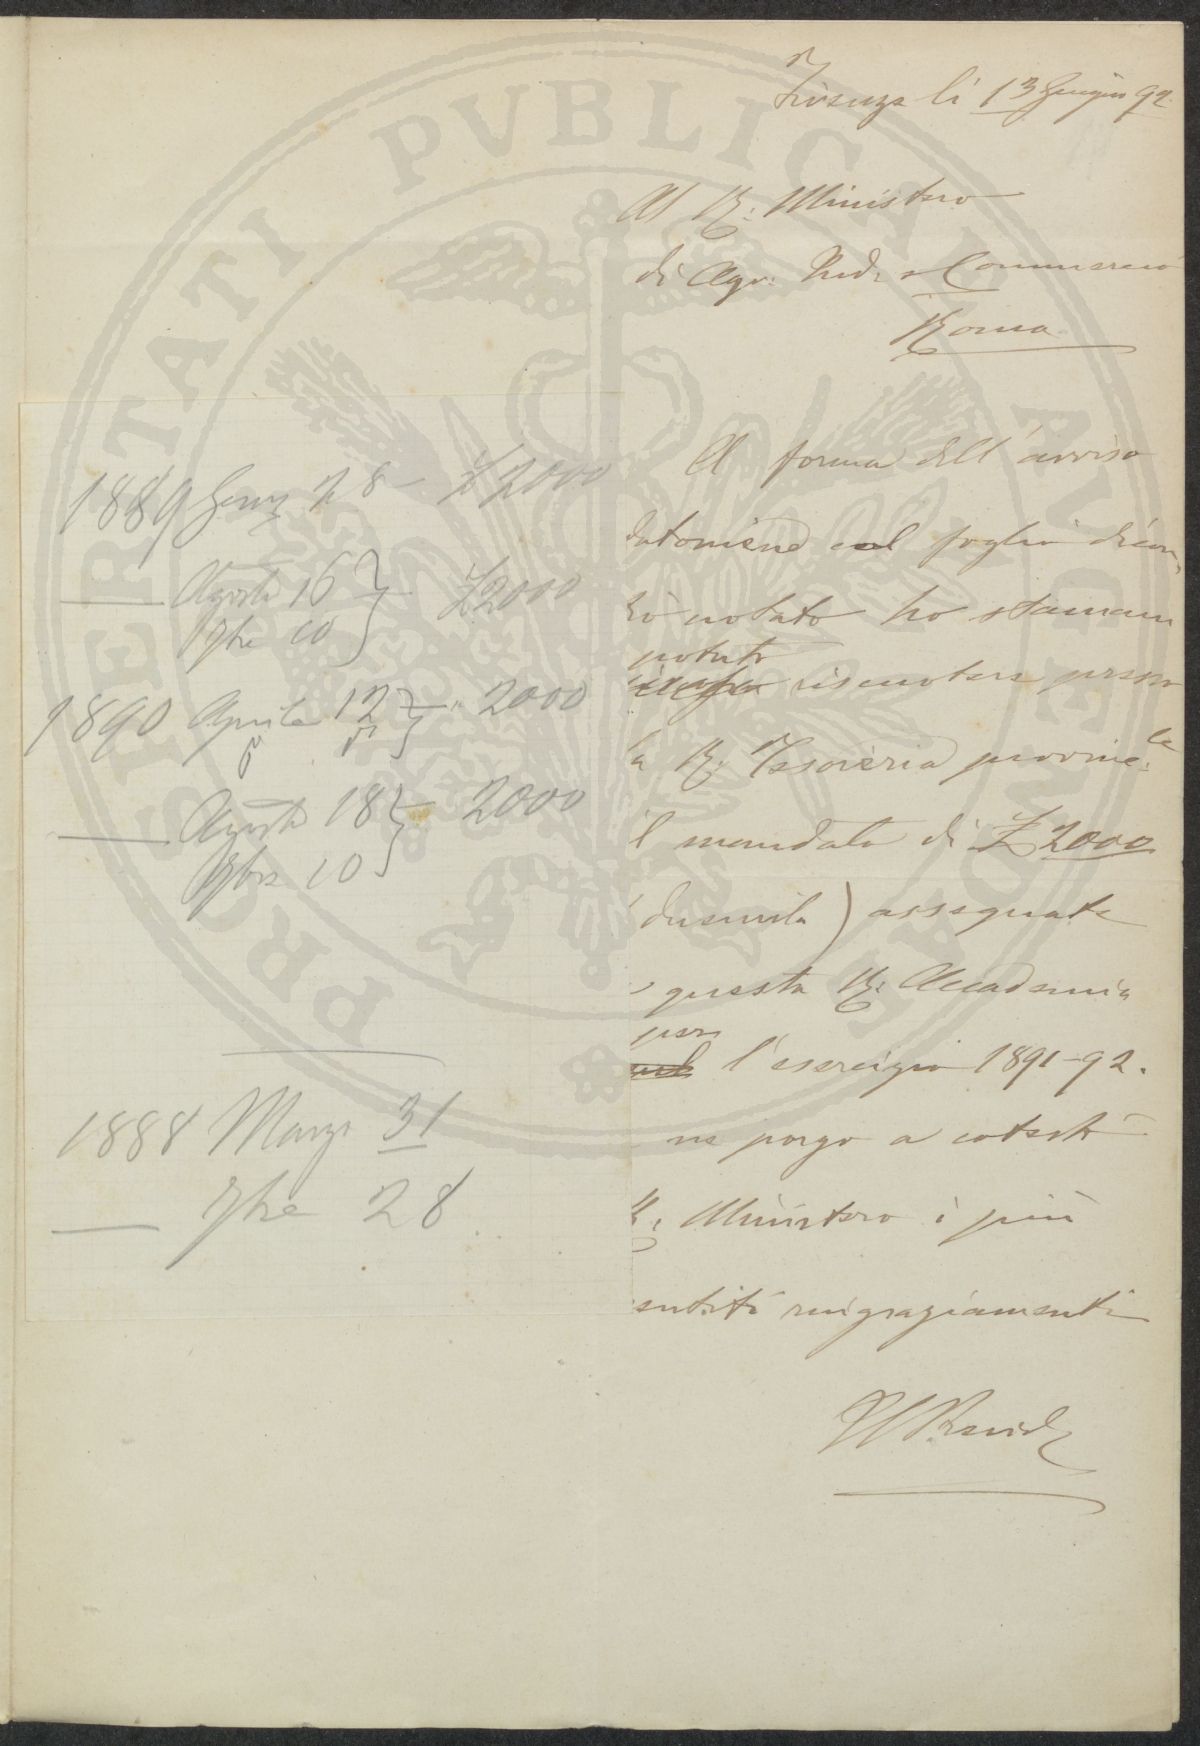 Firenze li 13 Giugno 92.
Al R. Ministero
di Agr. Ind. e Commercio
Roma
A forma dell'avviso
datomene col foglio
notato ho staman
potuto
riscuotere presso
la R. Tesoreria provinc.le
il mandato di £ 2000
(duemila) assegnate
a questa R. Accademia
per
nel l'esercizio 1891-92.
ne porgo a cotesto
R. Ministero i più
sentiti ringraziamenti
1889 Genn 28 £ 2000
Agosto 16
7bre 10 } £ 2000
1890 Aprile 12 } " 2000
Agosto 18 } 2000
10
1888 Marzo 31
7bre 28.
PROSPERITATI PVBLICAE AVGENDAE